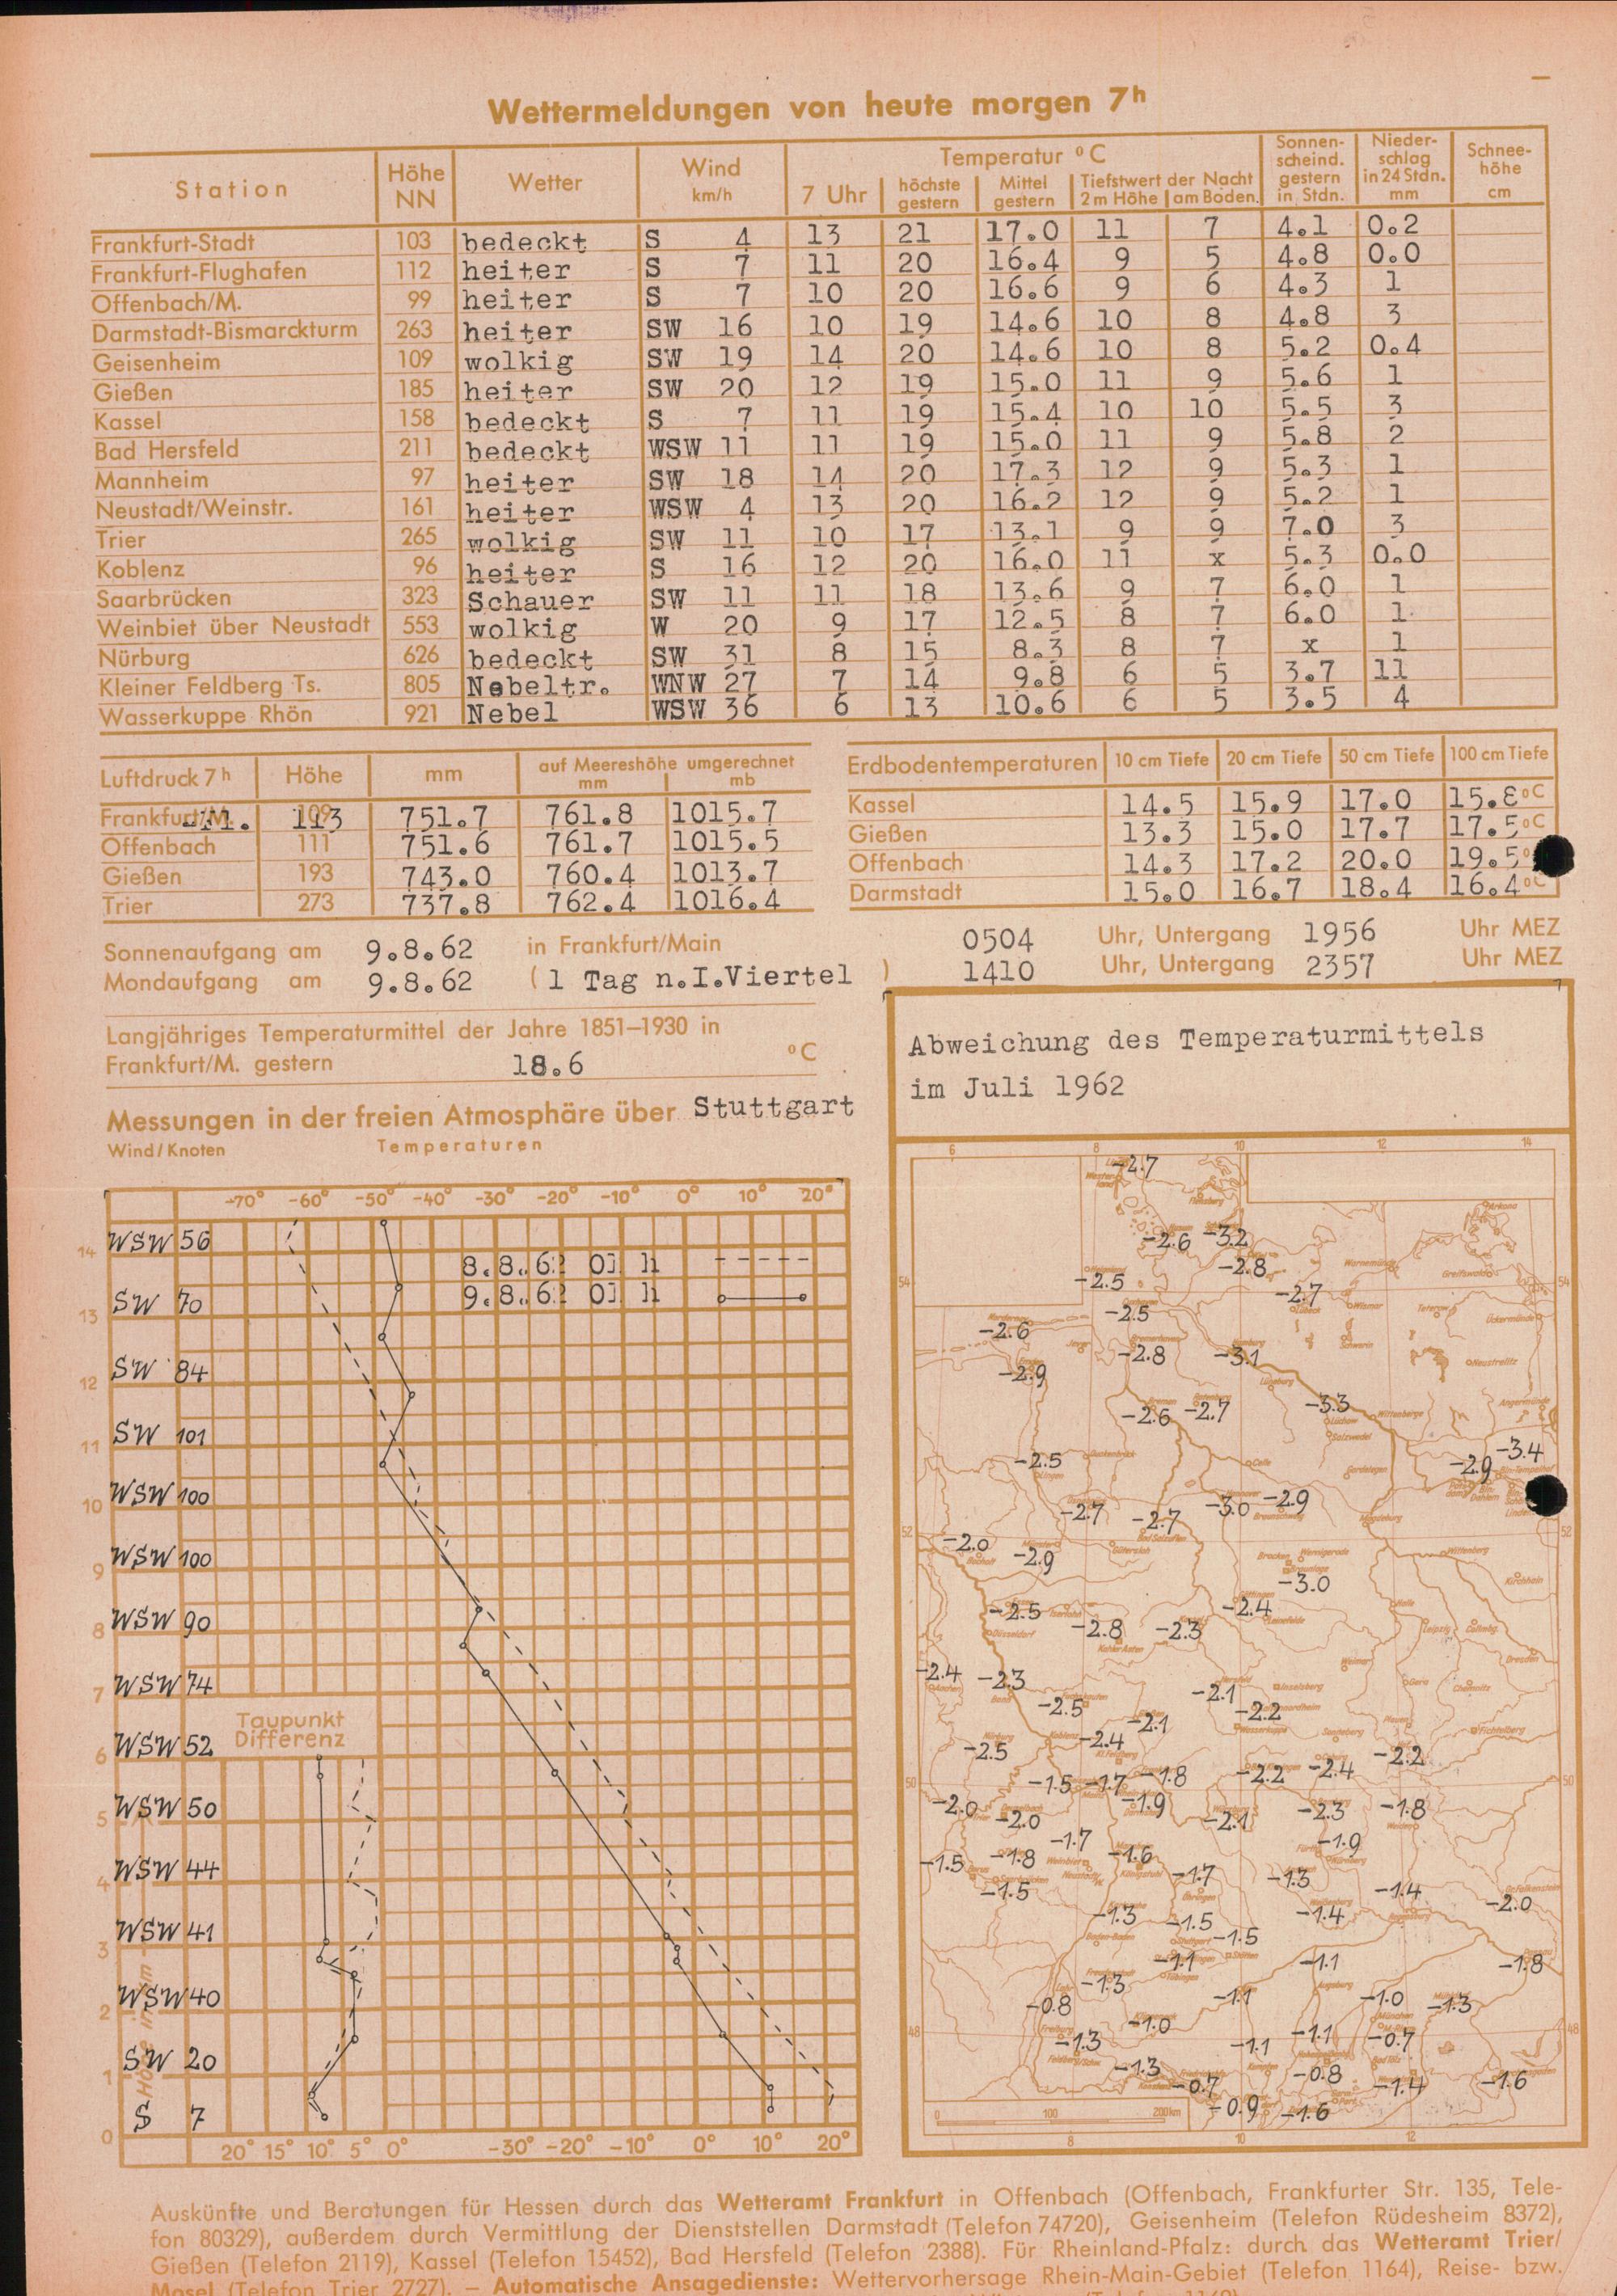 Wettermeldungen von heute morgen 7h
Station Höhe NN Wetter Wind km/h Temperatur °C Sonnenscheind. gestern in Stdn. Niederschlag in 24 Stdn. mm Schneehöhe cm
7 Uhr höchste gestern Mittel gestern Tiefstwert der Nacht 2 m Höhe am Boden
Frankfurt-Stadt 103 bedeckt S 4 13 21 17.0 11 7 4.1 0.2
Frankfurt-Flughafen 112 heiter S 7 11 20 16.4 9 5 4.8 0.0
Offenbach/M. 99 heiter S 7 10 20 16.6 9 6 4.3 1
Darmstadt-Bismarckturm 263 heiter SW 16 10 19 14.6 10 8 4.8 3
Geisenheim 109 wolkig SW 19 14 20 14.6 10 8 5.2 0.4
Gießen 185 heiter SW 20 12 19 15.0 11 9 5.6 1
Kassel 158 bedeckt S 7 11 19 15.4 10 10 5.5 3
Bad Hersfeld 211 bedeckt WSW 11 11 19 15.0 11 9 5.8 2
Mannheim 97 heiter SW 18 14 20 17.3 12 9 5.3 1
Neustadt/Weinstr. 161 heiter WSW 4 13 20 16.2 12 9 5.2 1
Trier 265 wolkig SW 11 10 17 13.1 9 9 7.0 3
Koblenz 96 heiter S 16 12 20 16.0 11 x 5.3 0.0
Saarbrücken 323 Schauer SW 11 11 18 13.6 9 7 6.0 1
Weinbiet über Neustadt 553 wolkig W 20 9 17 12.5 8 7 6.0 1
Nürburg 626 bedeckt SW 31 8 15 8.3 8 7 x 1
Kleiner Feldberg Ts. 805 Nebeltr. WNW 27 7 14 9.8 6 5 3.7 11
Wasserkuppe Rhön 921 Nebel WSW 36 6 13 10.6 6 5 3.5 4
Luftdruck 7h Höhe mm auf Meereshöhe umgerechnet mm mb
Frankfurt/M. 113 751.7 761.8 1015.7
Offenbach 111 751.6 761.7 1015.5
Gießen 193 743.0 760.4 1013.7
Trier 273 737.8 762.4 1016.4
Erdbodentemperaturen 10 cm Tiefe 20 cm Tiefe 50 cm Tiefe 100 cm Tiefe
Kassel 14.5 15.9 17.0 15.8 °C
Gießen 13.3 15.0 17.7 17.5 °C
Offenbach 14.3 17.2 20.0 19.5
Darmstadt 15.0 16.7 18.4 16.4 °C
Sonnenaufgang am 9.8.62 in Frankfurt/Main 0504 Uhr, Untergang 1956 Uhr MEZ
Mondaufgang am 9.8.62 (1 Tag n.I.Viertel ) 1410 Uhr, Untergang 2357 Uhr MEZ
Langjähriges Temperaturmittel der Jahre 1851–1930 in
Frankfurt/M. gestern 18.6 °C
Messungen in der freien Atmosphäre über Stuttgart
Wind/Knoten Temperaturen
-70° -60° -50° -40° -30° -20° -10° 0° 10° 20°
14 WSW 56
8.8.62 01 h
9.8.62 01 h
13 SW 70
12 SW 84
11 SW 101
10 WSW 100
9 WSW 100
8 WSW 90
7 WSW 74
Taupunkt
Differenz
6 WSW 52
5 WSW 50
4 WSW 44
3 WSW 41
2 WSW 40
1 SW 20
0 S 7
Höhe in km
20° 15° 10° 5° 0° -30° -20° -10° 0° 10° 20°
Abweichung des Temperaturmittels
im Juli 1962
6 8 10 12 14
-2.7
-2.6 -3.2
-2.8
54 -2.5 -2.7 54
-2.5
-2.6
-2.8 -3.1
-2.9
-2.6 -2.7 -3.3
-2.5 -2.9 -3.4
-2.7 -2.7 -3.0 -2.9
52 -2.0 -2.9 52
-3.0
-2.5 -2.4
-2.8 -2.3
-2.4 -2.3
-2.5 -2.1 -2.2
-2.1
-2.5 -2.4 -2.2
50 -1.5 -1.7 -1.8 -2.2 -2.4 50
-2.0 -2.0 -1.9 -2.1 -2.3 -1.8
-1.7 -1.9
-1.5 -1.8 -1.6
-1.5 -1.7 -1.3 -1.4
-2.0
-1.3 -1.5 -1.4
-1.5
-1.1 -1.1 -1.8
-1.3
-0.8 -1.1 -1.0 -1.3
48 -1.0 48
-1.3 -1.1 -1.1 -0.7
-1.3 -0.8
-0.7 -1.4 -1.6
-0.9 -1.6
0 100 200km
8 10 12
Auskünfte und Beratungen für Hessen durch das Wetteramt Frankfurt in Offenbach (Offenbach, Frankfurter Str. 135, Tele-
fon 80329), außerdem durch Vermittlung der Dienststellen Darmstadt (Telefon 74720), Geisenheim (Telefon Rüdesheim 8372),
Gießen (Telefon 2119), Kassel (Telefon 15452), Bad Hersfeld (Telefon 2388). Für Rheinland-Pfalz: durch das Wetteramt Trier/
Mosel (Telefon Trier 2727). — Automatische Ansagedienste: Wettervorhersage Rhein-Main-Gebiet (Telefon 1164), Reise- bzw.